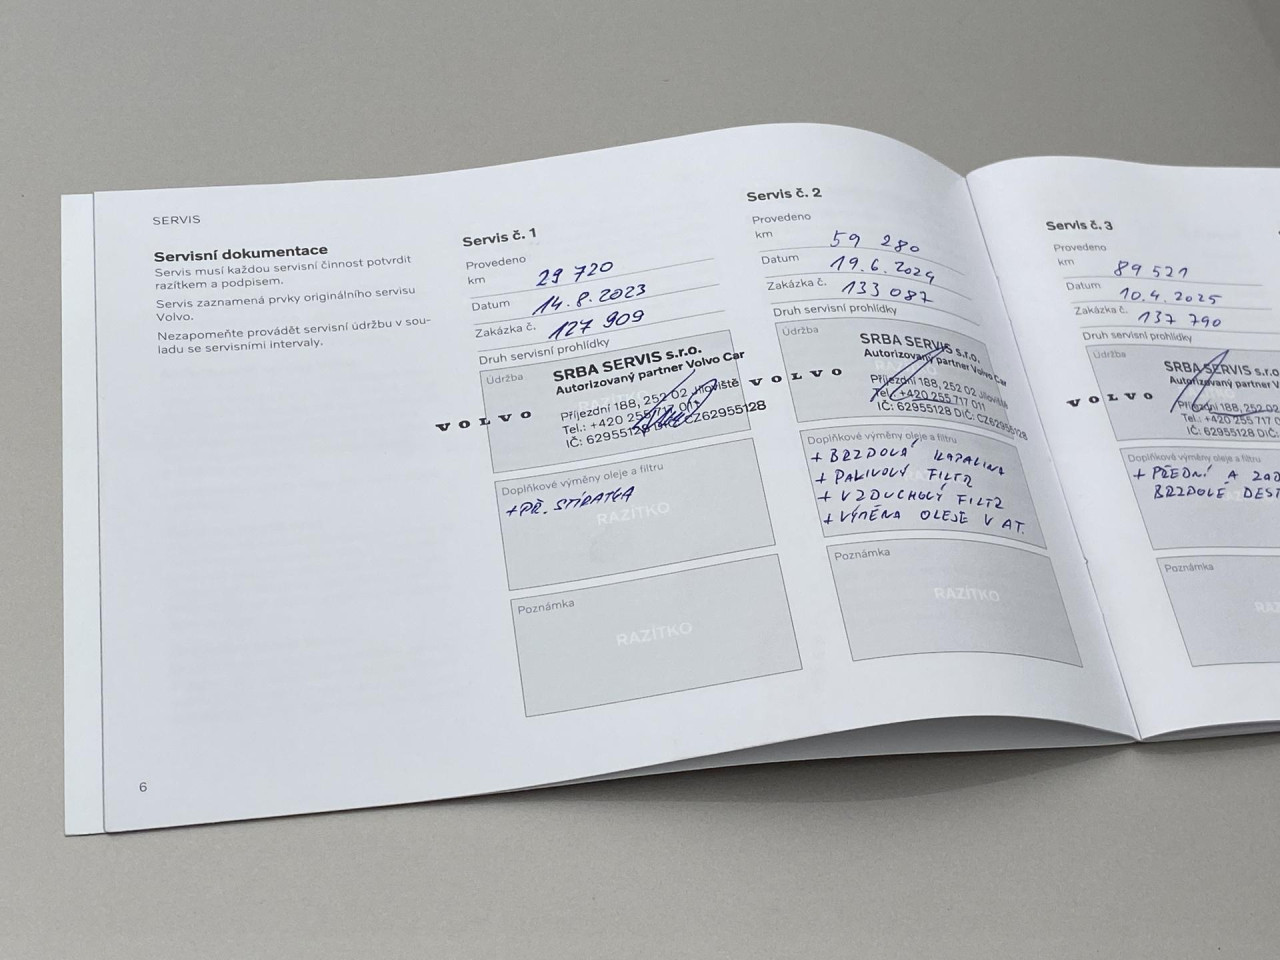 SERVIS
Servisní dokumentace
Servis musí každou servisní činnost potvrdit
razítkem a podpisem.
Servis zaznamená prvky originálního servisu
Volvo.
Nezapomeňte provádět servisní údržbu v sou-
ladu se servisními intervaly.
6
Servis č. 1
Provedeno
km 29 720
Datum 14.8.2023
Zakázka č. 127 909
Druh servisní prohlídky
Údržba
SRBA SERVIS s.r.o.
Autorizovaný partner Volvo Car
VOLVO
Příjezdní 188, 252 02 Jíloviště
Tel.: +420 255 717 011
IČ: 62955128 DIČ: CZ62955128
Doplňkové výměny oleje a filtru
+PŘ. STÍRÁTKA
RAZÍTKO
Poznámka
RAZÍTKO
Servis č. 2
Provedeno
km 59 280
Datum 19.6.2024
Zakázka č. 133 087
Druh servisní prohlídky
Údržba
SRBA SERVIS s.r.o.
Autorizovaný partner Volvo Car
VOLVO
Příjezdní 188, 252 02 Jíloviště
Tel.: +420 255 717 011
IČ: 62955128 DIČ: CZ62955128
Doplňkové výměny oleje a filtru
+ BRZDOVÁ KAPALINA
+ PALIVOVÝ FILTR
+ VZDUCHOVÝ FILTR
+ VÝMĚNA OLEJE V AT.
Poznámka
RAZÍTKO
Servis č. 3
Provedeno
km 89 521
Datum 10.4.2025
Zakázka č. 137 790
Druh servisní prohlídky
Údržba
SRBA SERVIS s.r.o.
Autorizovaný partner V
VOLVO
Příjezdní 188, 252 02
Tel.: +420 255 717 0
IČ: 62955128 DIČ:
Doplňkové výměny oleje a filtru
+ PŘEDNÍ A ZAD
BRZDOVÉ DEST
Poznámka
RAZ